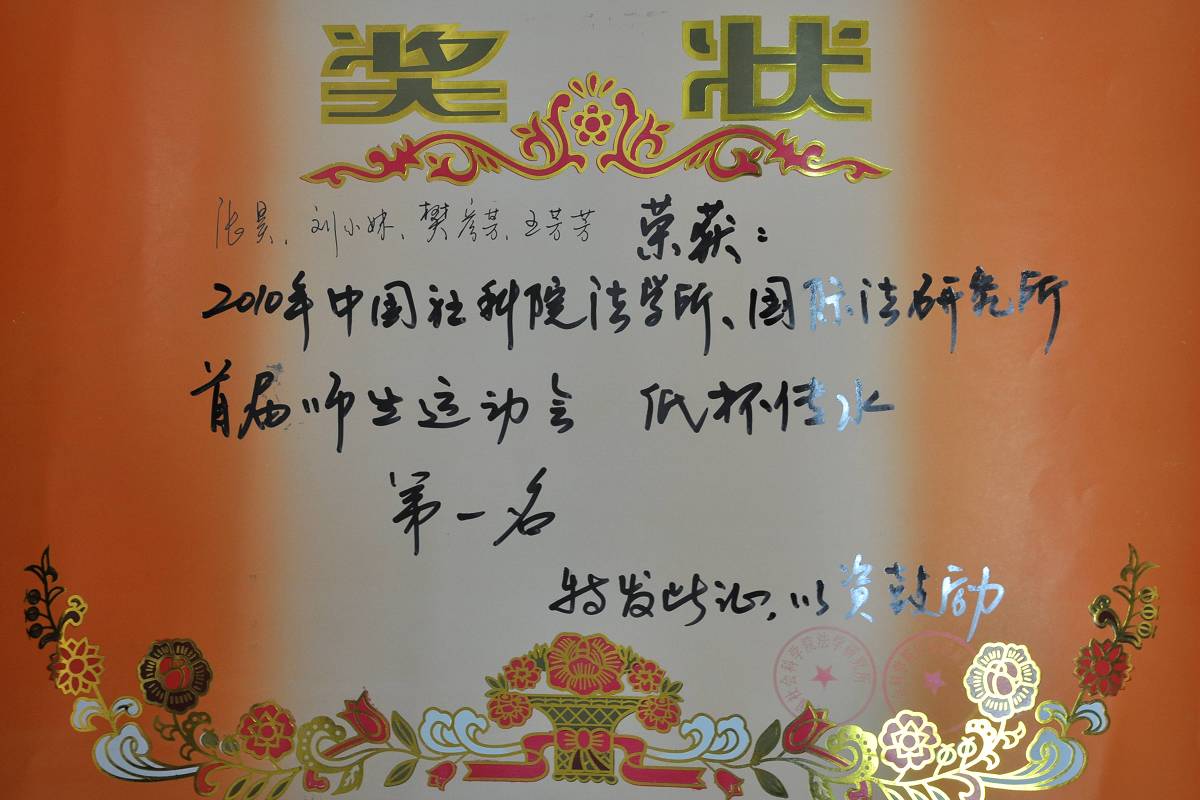 奖状
张昊、刘小妹、樊彦芳、王芳芳 荣获：
2010年中国社科院法学所、国际法研究所
首届师生运动会 低杯传水
第一名
特发此证，以资鼓励
社会科学院法学研究所